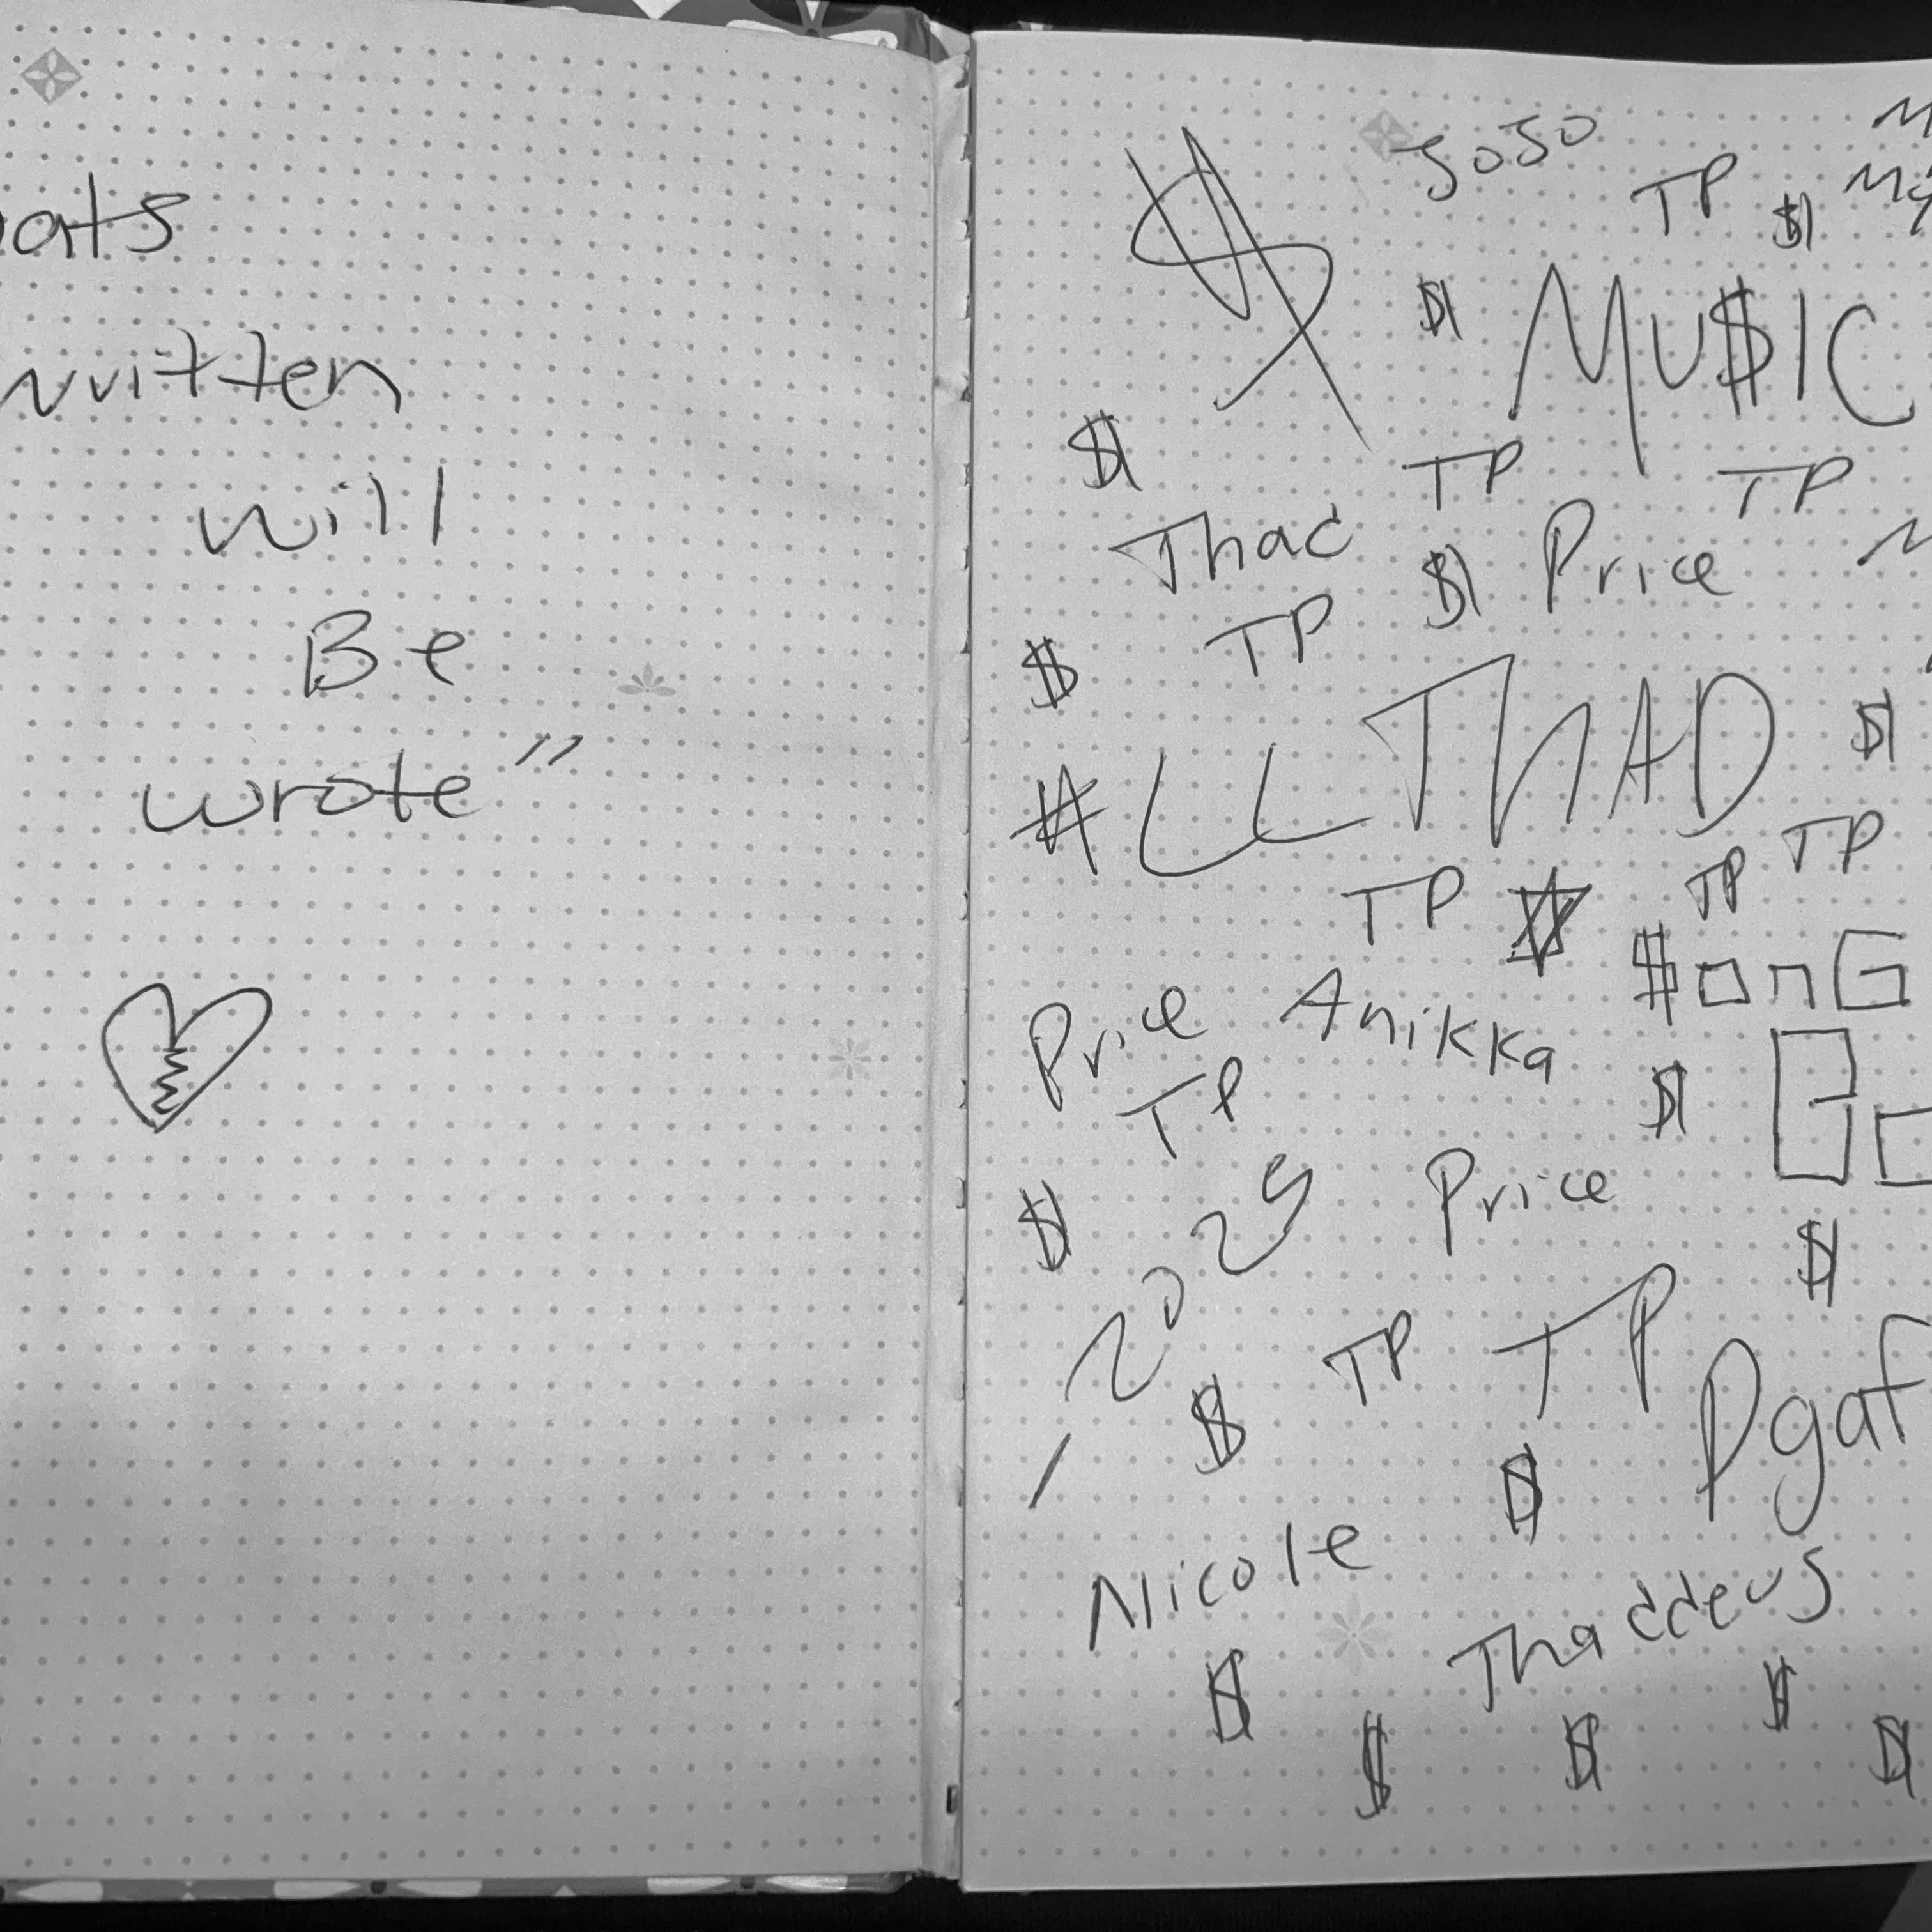 written
will
Be
wrote"
$ JoJo
TP $
$ MU$IC
$ TP TP
Thad $ Price
$ TP
#LLTHAD $
TP TP TP
$onG
Price Anikka
TP $
$ 2025 Price
$
$ TP TP
$ Pgaf
Nicole
Thaddeus
$ $ $ $ $